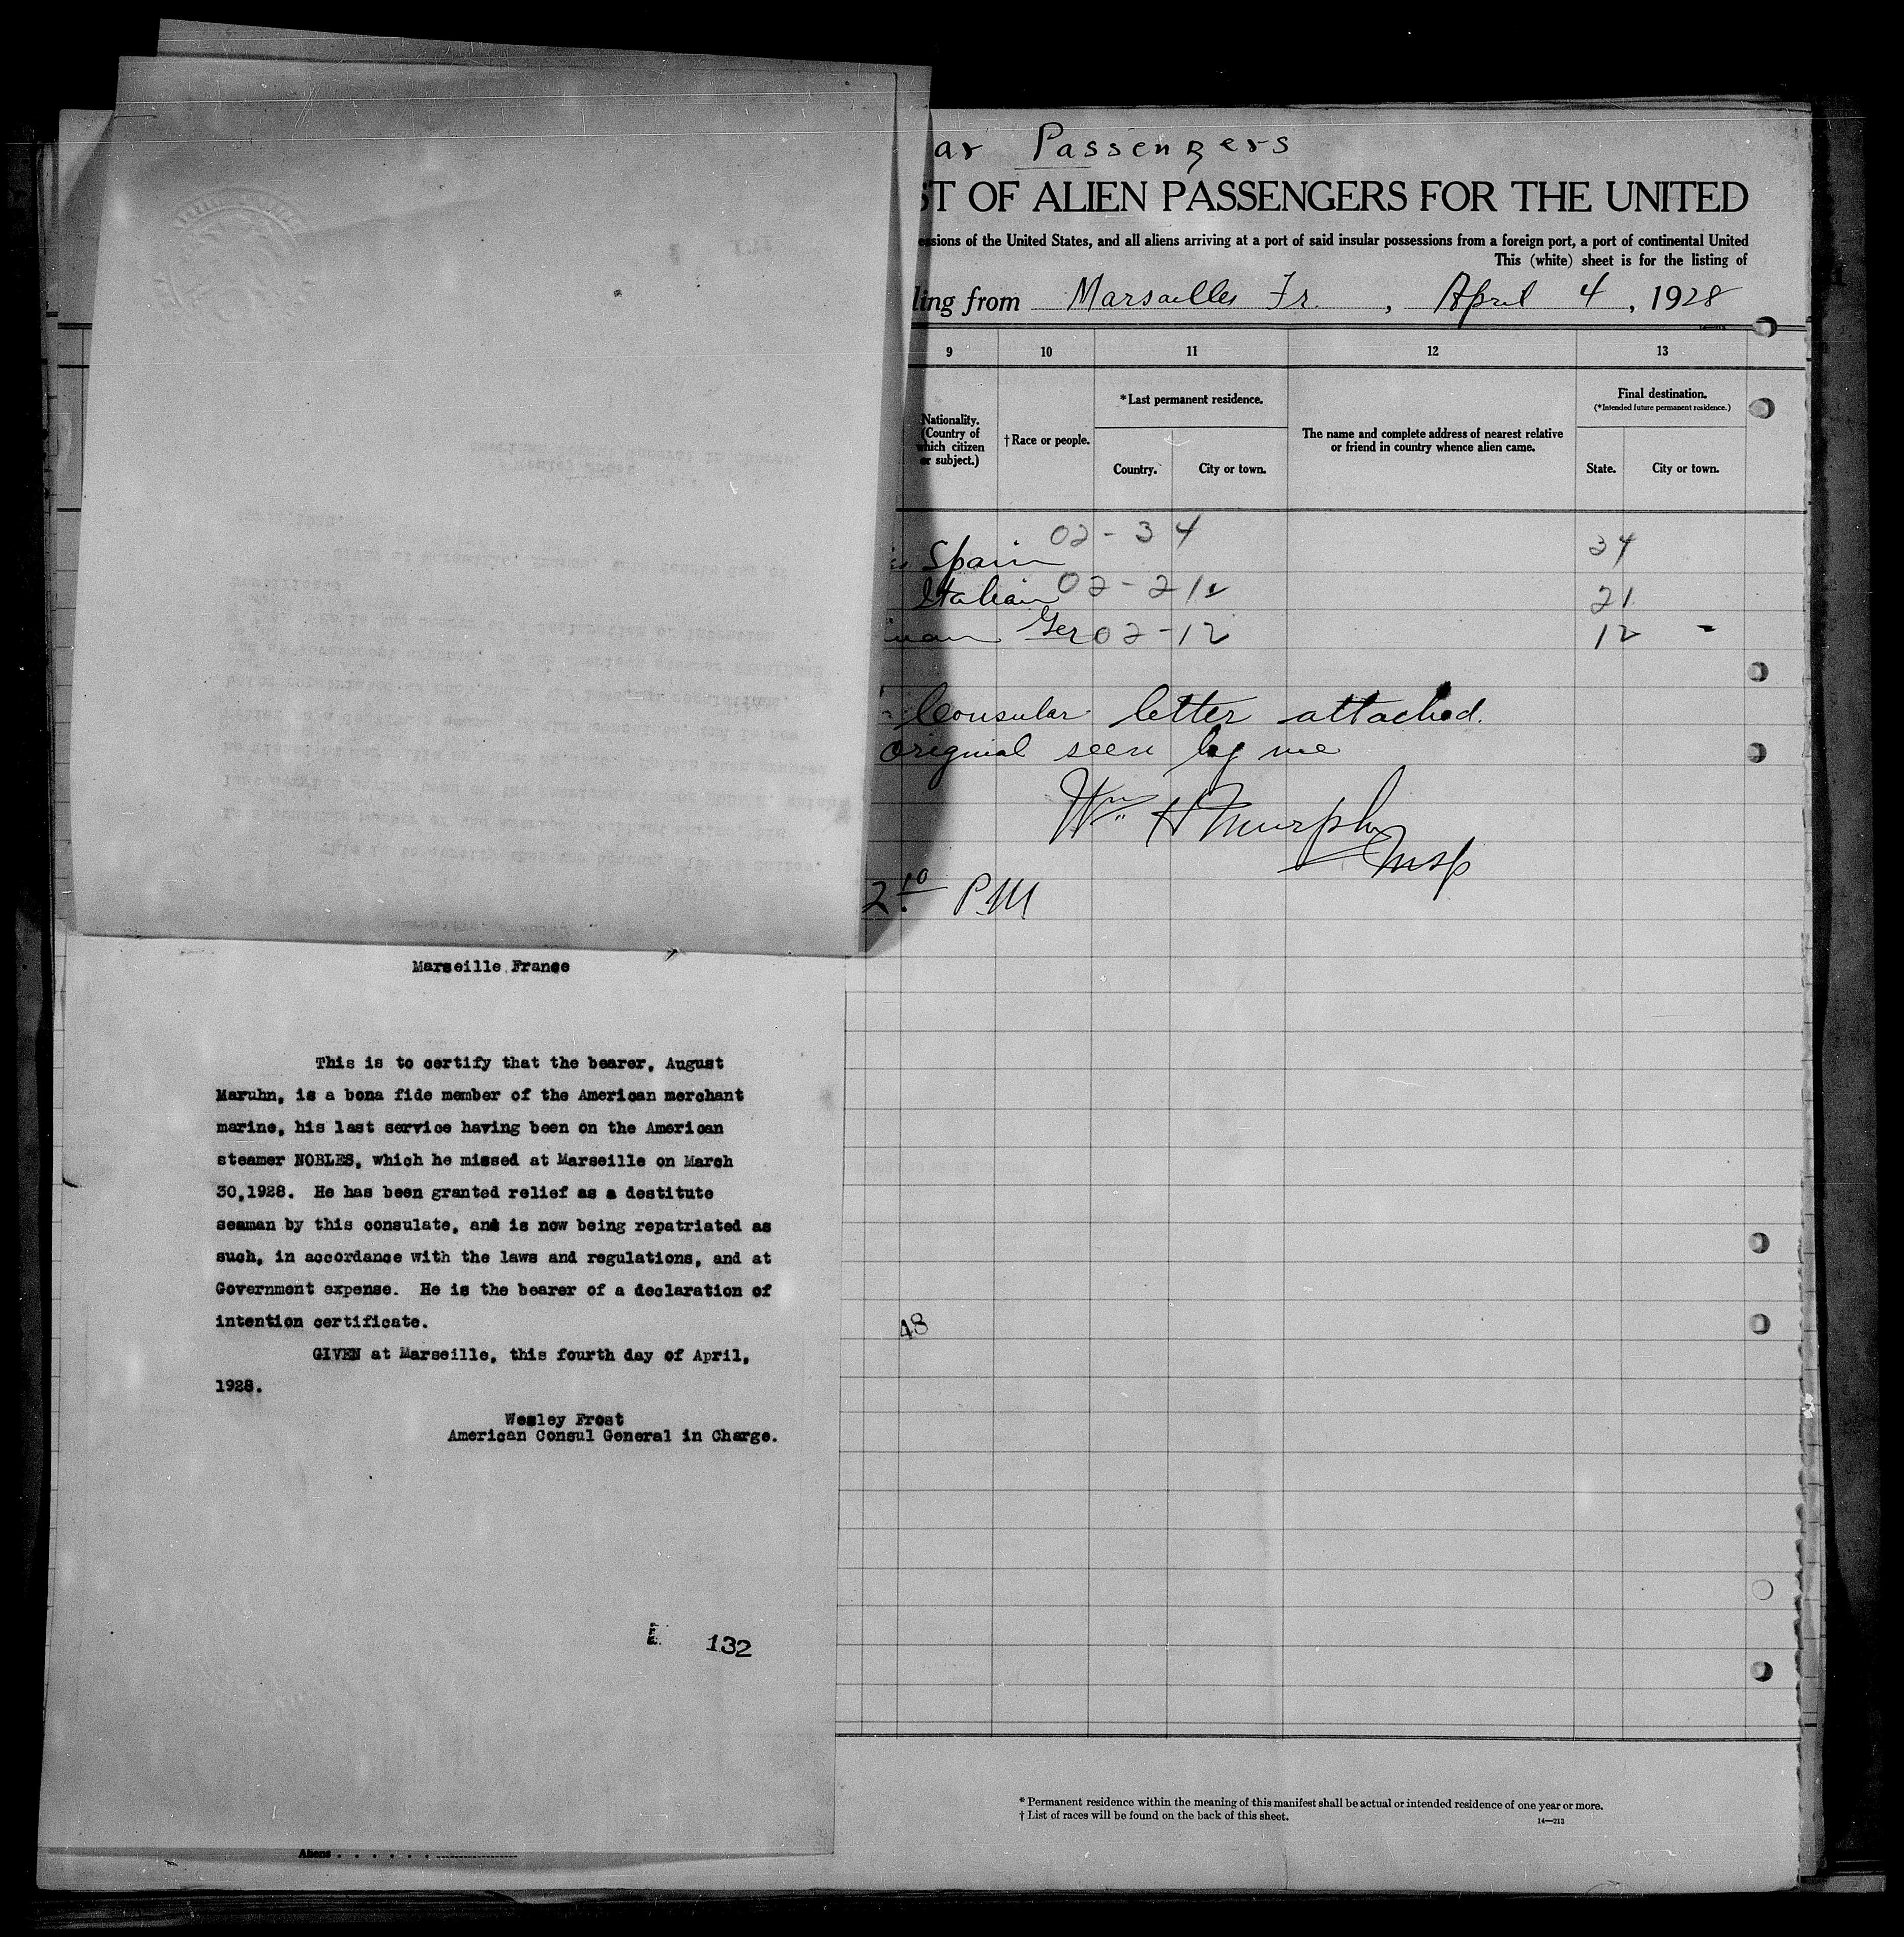 ar Passengers
ST OF ALIEN PASSENGERS FOR THE UNITED
sions of the United States, and all aliens arriving at a port of said insular possessions from a foreign port, a port of continental United
This (white) sheet is for the listing of
ling from Marsailles Fr. , April 4 , 1928
9 10 11 12 13
Nationality. (Country of which citizen or subject.)
† Race or people.
* Last permanent residence.
Country. City or town.
The name and complete address of nearest relative
or friend in country whence alien came.
Final destination.
(*Intended future permanent residence.)
State. City or town.
Spain 02-34 34
Italian 02-21 21
Ger 02-12 12 -
Consular letter attached.
original seen by me
Wm H Murphy
Insp
2.10 PM
48
* Permanent residence within the meaning of this manifest shall be actual or intended residence of one year or more.
† List of races will be found on the back of this sheet.
14—213
Marseille, France
This is to certify that the bearer, August
Maruhn, is a bona fide member of the American merchant
marine, his last service having been on the American
steamer NOBLES, which he missed at Marseille on March
30,1928. He has been granted relief as a destitute
seaman by this consulate, and is now being repatriated as
such, in accordance with the laws and regulations, and at
Government expense. He is the bearer of a declaration of
intention certificate.
GIVEN at Marseille, this fourth day of April,
1928.
Wesley Frost
American Consul General in Charge.
132
Aliens . . . . . .